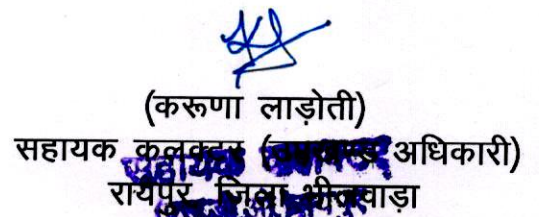 (करूणा लाड़ोती)
सहायक कलक्टर (उपखण्ड अधिकारी)
रायपुर, जिला भीलवाड़ा